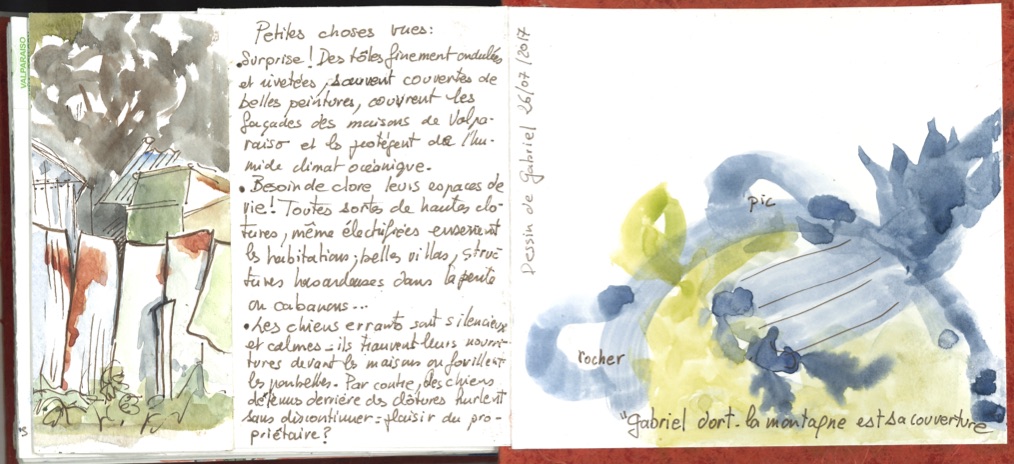 VALPARAISO
Petites choses vues :
• Surprise ! Des tôles finement ondulées
et rivetées, souvent couvertes de
belles peintures, couvrent les
façades des maisons de Valpa-
raiso et les protègent de l'hu-
mide climat océanique.
• Besoin de clore leurs espaces de
vie ! Toutes sortes de hautes clô-
tures, même électrifiées enserrent
les habitations ; belles villas, struc-
tures hasardeuses dans la pente
ou cabanons...
• Les chiens errants sont silencieux
et calmes = ils trouvent leurs nourri-
tures devant les maisons ou fouillent
les poubelles. Par contre, des chiens
détenus derrière des clôtures hurlent
sans discontinuer = plaisir du pro-
priétaire ?
Dessin de Gabriel 26/07/2017
pic
rocher
"Gabriel dort. la montagne est sa couverture